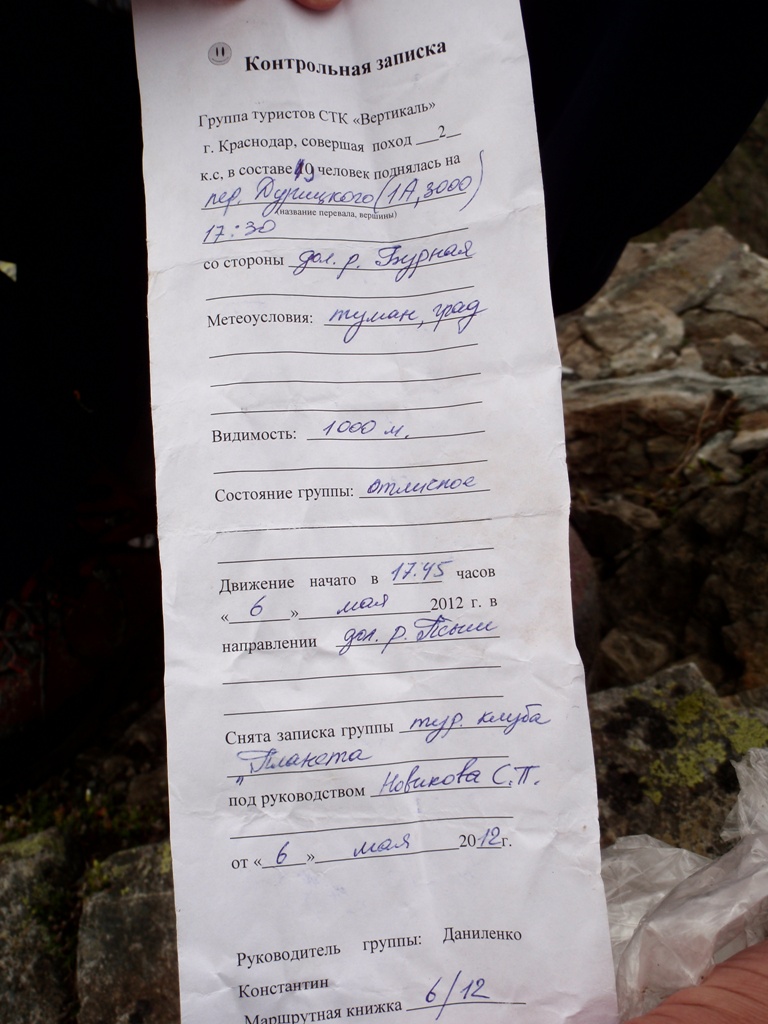 Контрольная записка
Группа туристов СТК «Вертикаль»
г. Краснодар, совершая поход 2
к.с, в составе 19 человек поднялась на
пер. Дурицкого (1А, 3000)
(название перевала, вершины)
17:30
со стороны дол. р. Бурная
Метеоусловия: туман, град
Видимость: 1000 м.
Состояние группы: отличное
Движение начато в 17:45 часов
« 6 » мая 2012 г. в
направлении дол. р. Псыш
Снята записка группы тур. клуба
„Планета
под руководством Новикова С.П.
от « 6 » мая 2012г.
Руководитель группы: Даниленко
Константин
Маршрутная книжка 6/12